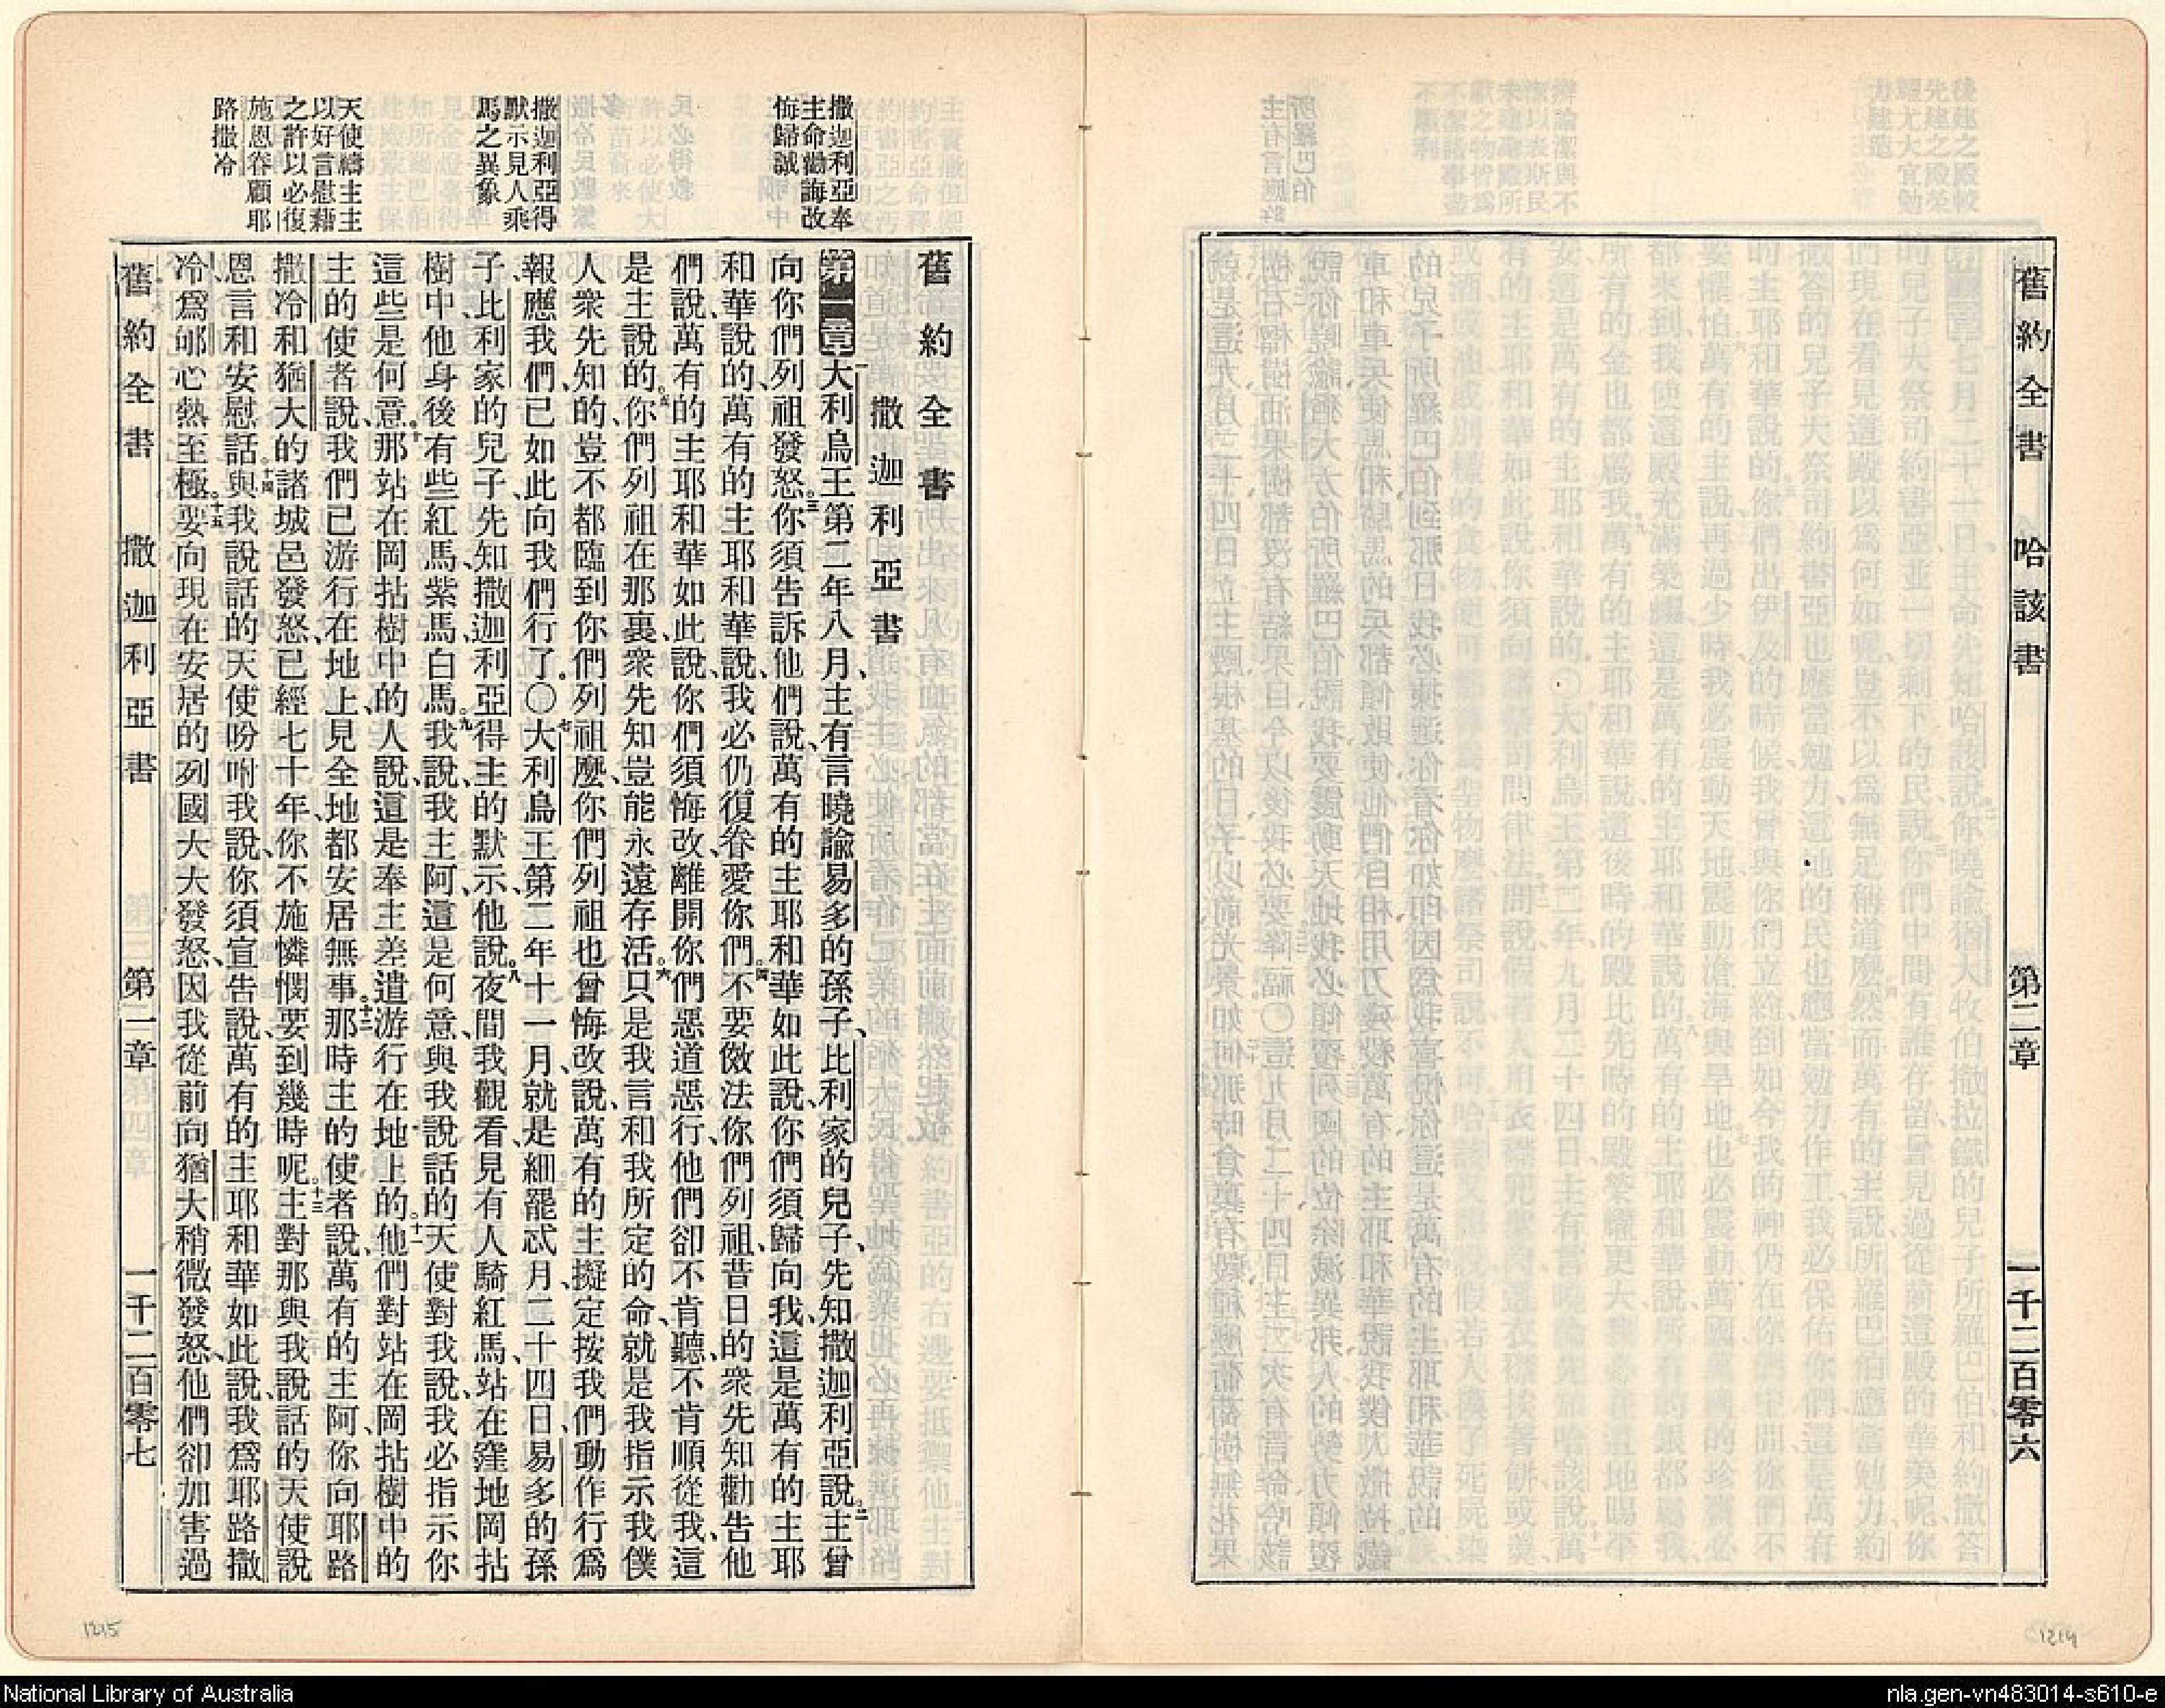 舊約全書 哈該書 第二章 一千二百零六
撒迦利亞奉
主命勸誨改
悔歸誠
撒迦利亞得
默示見人乘
馬之異象
天使禱主主
以好言慰藉
之許以必復
施恩眷顧耶
路撒冷
舊約全書
撒迦利亞書
第一章一大利烏王第二年八月、主有言曉諭易多的孫子、比利家的兒子、先知撒迦利亞說。二主曾
向你們列祖發怒。三你須告訴他們說、萬有的主耶和華如此說、你們須歸向我、這是萬有的主耶
和華說的、萬有的主耶和華說、我必仍復眷愛你們。四不要傚法你們列祖、昔日的衆先知勸告他
們說、萬有的主耶和華如此說、你們須悔改、離開你們惡道惡行、他們卻不肯聽、不肯順從我、這
是主說的。五你們列祖在那裏衆先知豈能永遠存活。六只是我言和我所定的命、就是我指示我僕
人衆先知的、豈不都臨到你們列祖麼、你們列祖也曾悔改說、萬有的主擬定按我們動作行爲
報應我們、已如此向我們行了。〇七大利烏王第二年十一月、就是細罷忒月、二十四日、易多的孫
子、比利家的兒子、先知撒迦利亞得主的默示、他說。八夜間我觀看、見有人騎紅馬、站在窪地岡拈
樹中、他身後有些紅馬、紫馬、白馬。九我說、我主阿、這是何意、與我說話的天使對我說、我必指示你
這些是何意。十那站在岡拈樹中的人說、這是奉主差遣游行在地上的。十一他們對站在岡拈樹中的
主的使者說、我們已游行在地上、見全地都安居無事。十二那時主的使者說、萬有的主阿、你向耶路
撒冷和猶大的諸城邑發怒、已經七十年、你不施憐憫要到幾時呢。十三主對那與我說話的天使說
恩言和安慰話。十四與我說話的天使吩咐我說、你須宣告說、萬有的主耶和華如此說、我爲耶路撒
冷、爲郇心熱至極。十五要向現在安居的列國大大發怒、因我從前向猶大稍微發怒、他們卻加害過
舊約全書 撒迦利亞書 第一章 一千二百零七
1215
1214
National Library of Australia
nla.gen-vn483014-s610-e